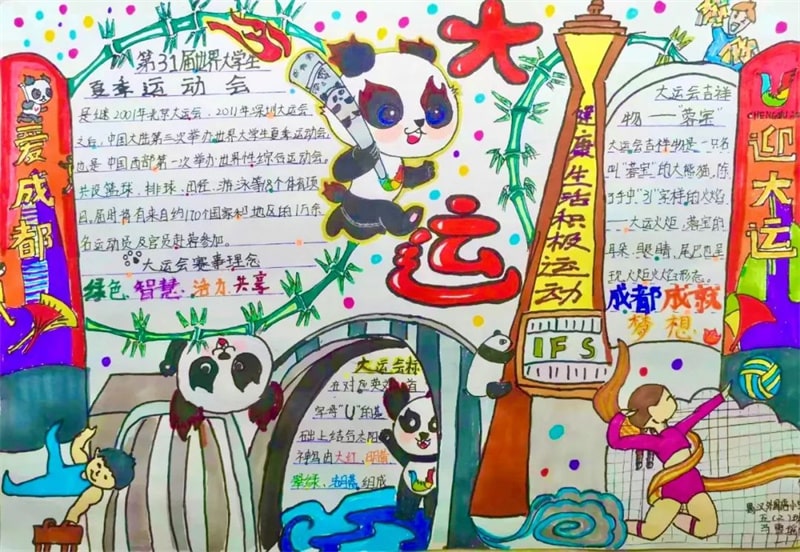 爱成都
第31届世界大学生
夏季运动会
是继2001年北京大运会、2011年深圳大运会
之后,中国大陆第三次举办世界大学生夏季运动会,
也是中国西部第一次举办世界性综合运动会。
共设篮球、排球、田径、游泳等18个体育项
目,届时将有来自约170个国家和地区的1万余
名运动员及官员赴蓉参加。
大运会赛事理念
绿色 智慧 活力 共享
大运
健康生活积极运动
IFS
大运会吉祥
物——"蓉宝"
大运会吉祥物是一只名
叫"蓉宝"的大熊猫,
手中"31"字样的火焰
大运火炬,蓉宝的
耳朵、眼睛、尾巴也呈
现火炬火焰形态。
成都成就
梦想
CHENGDU
迎大运
大运会标
"U"的基
础上结合太阳
神鸟由大红、明黄
翠绿、湖蓝组成